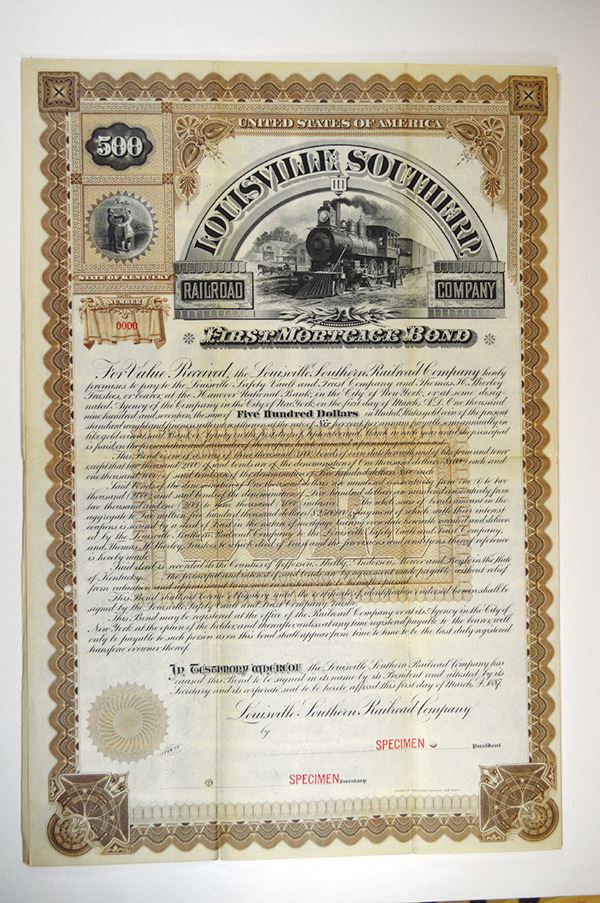 UNITED STATES OF AMERICA
500
LOUISVILLE SOUTHERN
RAILROAD
COMPANY
STATE OF KENTUCKY
NUMBER
0000
FIRST MORTGAGE BOND
For Value Received, the Louisville Southern Railroad Company hereby
promises to pay to the Louisville Safety Vault and Trust Company and Thomas W.
Trustees, or bearer, at the Hanover National Bank, in the City of New York, or at some desig-
nated Agency of the Company in the City of New York, on the first day of March, A.D. One thousand
nine hundred and seventeen, the sum of Five Hundred Dollars in United States gold coin of the present
standard weight and fineness with interest thereon at the rate of Six per cent per annum payable semi-annually in
like gold coin at said Bank or Agency on the first days of
is paid on the
This Bond is one of a series of three thousand bonds of even date herewith and of like tenor and form
except that two thousand 2000 of said bonds are of the denomination of One thousand dollars $1000 each and
one thousand of said bonds are of the denomination of Five hundred dollars $500 each.
Said bonds of the denomination of One thousand dollars are numbered consecutively from one to two
thousand and said bonds of the denomination of Five hundred dollars are numbered consecutively from
two thousand and one 2001 to three thousand 3000 inclusive. The said series of bonds amount in the
aggregate to two million five hundred thousand dollars $2,500,000 payment of which with their interest
coupons is secured by a deed of trust in the nature of mortgage bearing even date herewith executed and deliver-
ed by the Louisville Southern Railroad Company to the Louisville Safety Vault and Trust Company,
and Thomas W. Trustees to which deed of trust and the provisions and conditions thereof reference
is hereby made.
Said deed is recorded in the Counties of Jefferson, Shelby, Anderson, Mercer and Boyle in the State
of Kentucky. The principal and interest of said bonds are by agreement made payable without relief
from valuation and appraisement
This Bond shall not become obligatory until the certificate of identification endorsed hereon shall be
signed by the Louisville Safety Vault and Trust Company, Trustee.
This Bond may be registered at the office of the Railroad Company or at its Agency in the City of
New York at the option of the holder, and thereafter unless at any time registered payable to the bearer, will
only be payable to such person as on this bond shall appear from time to time to be the last duly registered
transferee or owner thereof.
In Testimony Whereof the Louisville Southern Railroad Company has
caused this Bond to be signed in its name by its President and attested by its
Secretary and its corporate seal to be hereto affixed this first day of March A.D. 1887.
Louisville Southern Railroad Company
by
SPECIMEN President
SPECIMEN Secretary